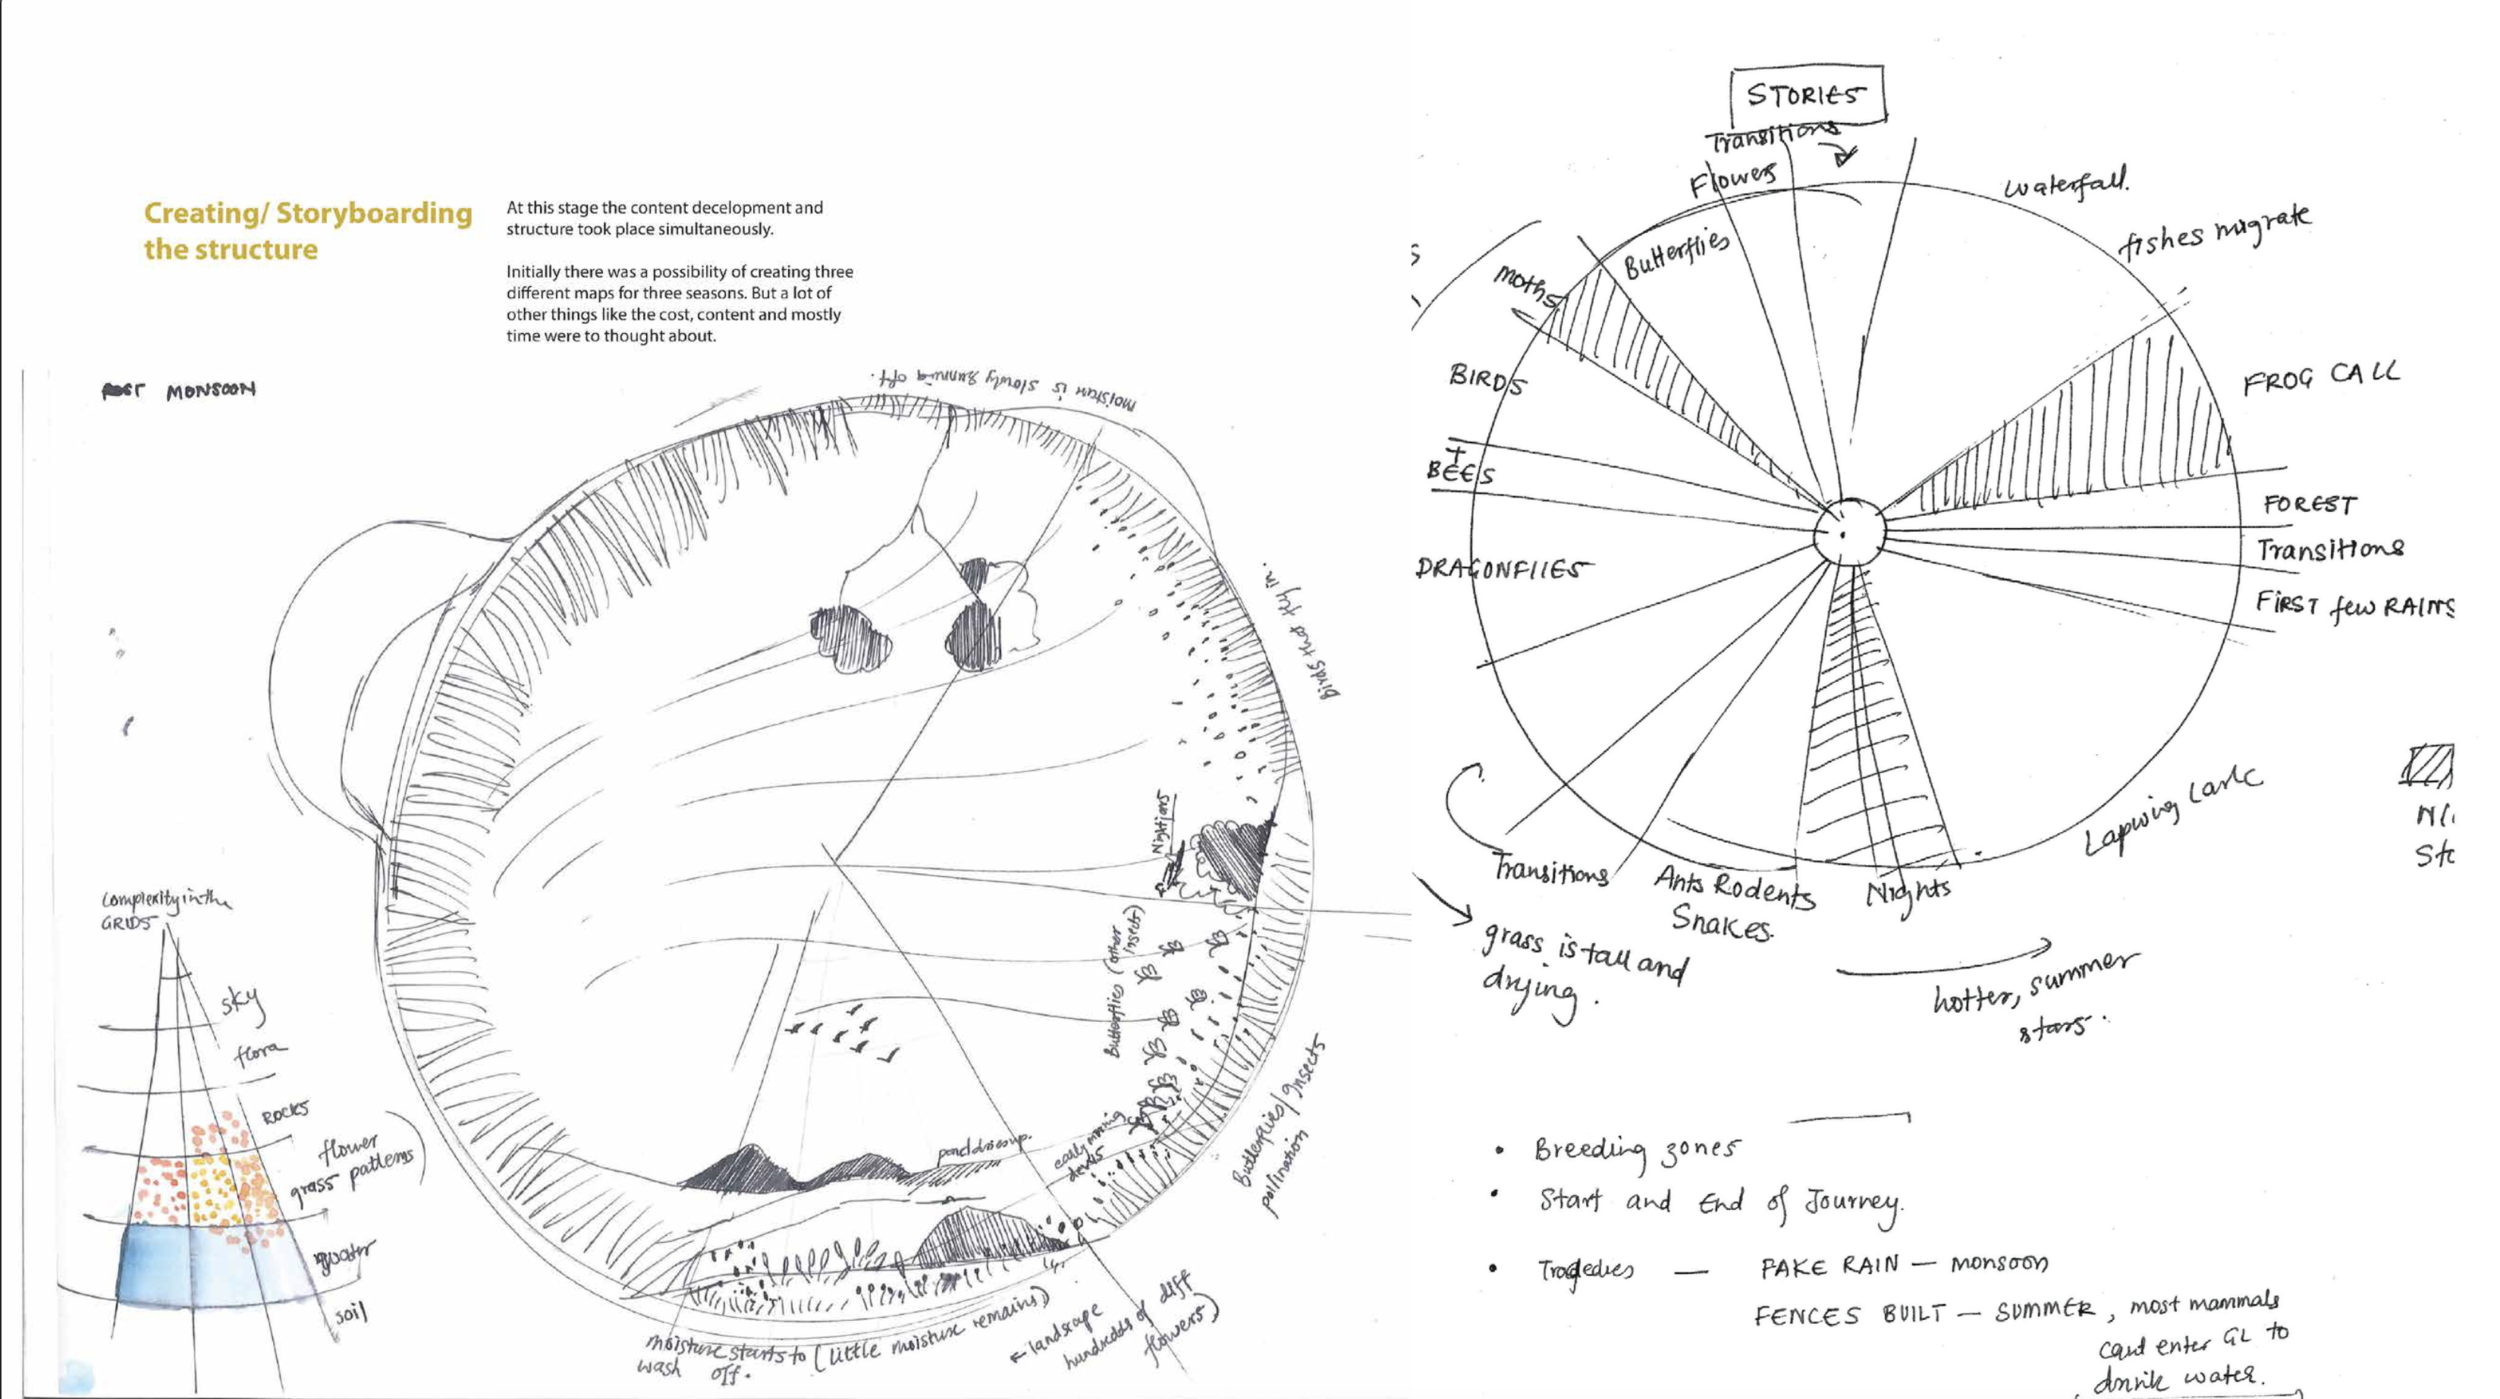 Creating/ Storyboarding
the structure
At this stage the content decelopment and
structure took place simultaneously.
Initially there was a possibility of creating three
different maps for three seasons. But a lot of
other things like the cost, content and mostly
time were to thought about.
POST MONSOON
moisture is slowly running off.
Birds that fly in.
Nightjars
Butterflies (other
insects)
Butterflies/Insects
pollination
early morning
dews
pond dries up.
moisture starts to (little moisture remains)
wash off.
← landscape
hundreds of diff
flowers)
Complexity in the
GRIDS
sky
flora
ROCKS
flower
grass patterns
water
soil
STORIES
Transitions
Flowers
waterfall.
fishes migrate
Butterflies
moths
BIRDS
FROG CALL
+
BEES
FOREST
Transitions
DRAGONFlIES
FIRST few RAINS
Lapwing Lark
Transitions
Ants Rodents
Snakes.
Nights
grass is tall and
drying.
hotter, summer
stars.
S
N/
St
• Breeding zones
• Start and End of Journey.
• Tragedies — FAKE RAIN — monsoon
FENCES BUILT — SUMMER, most mammals
cant enter GL to
drink water.